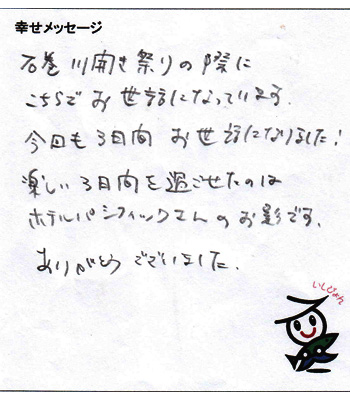 幸せメッセージ
石巻川開き祭りの際に
こちらでお世話になっています。
今回も3日間お世話になりました!
楽しい3日間を過ごせたのは
ホテルパシフィックさんのお影です。
ありがとうございました。
いしぴょん